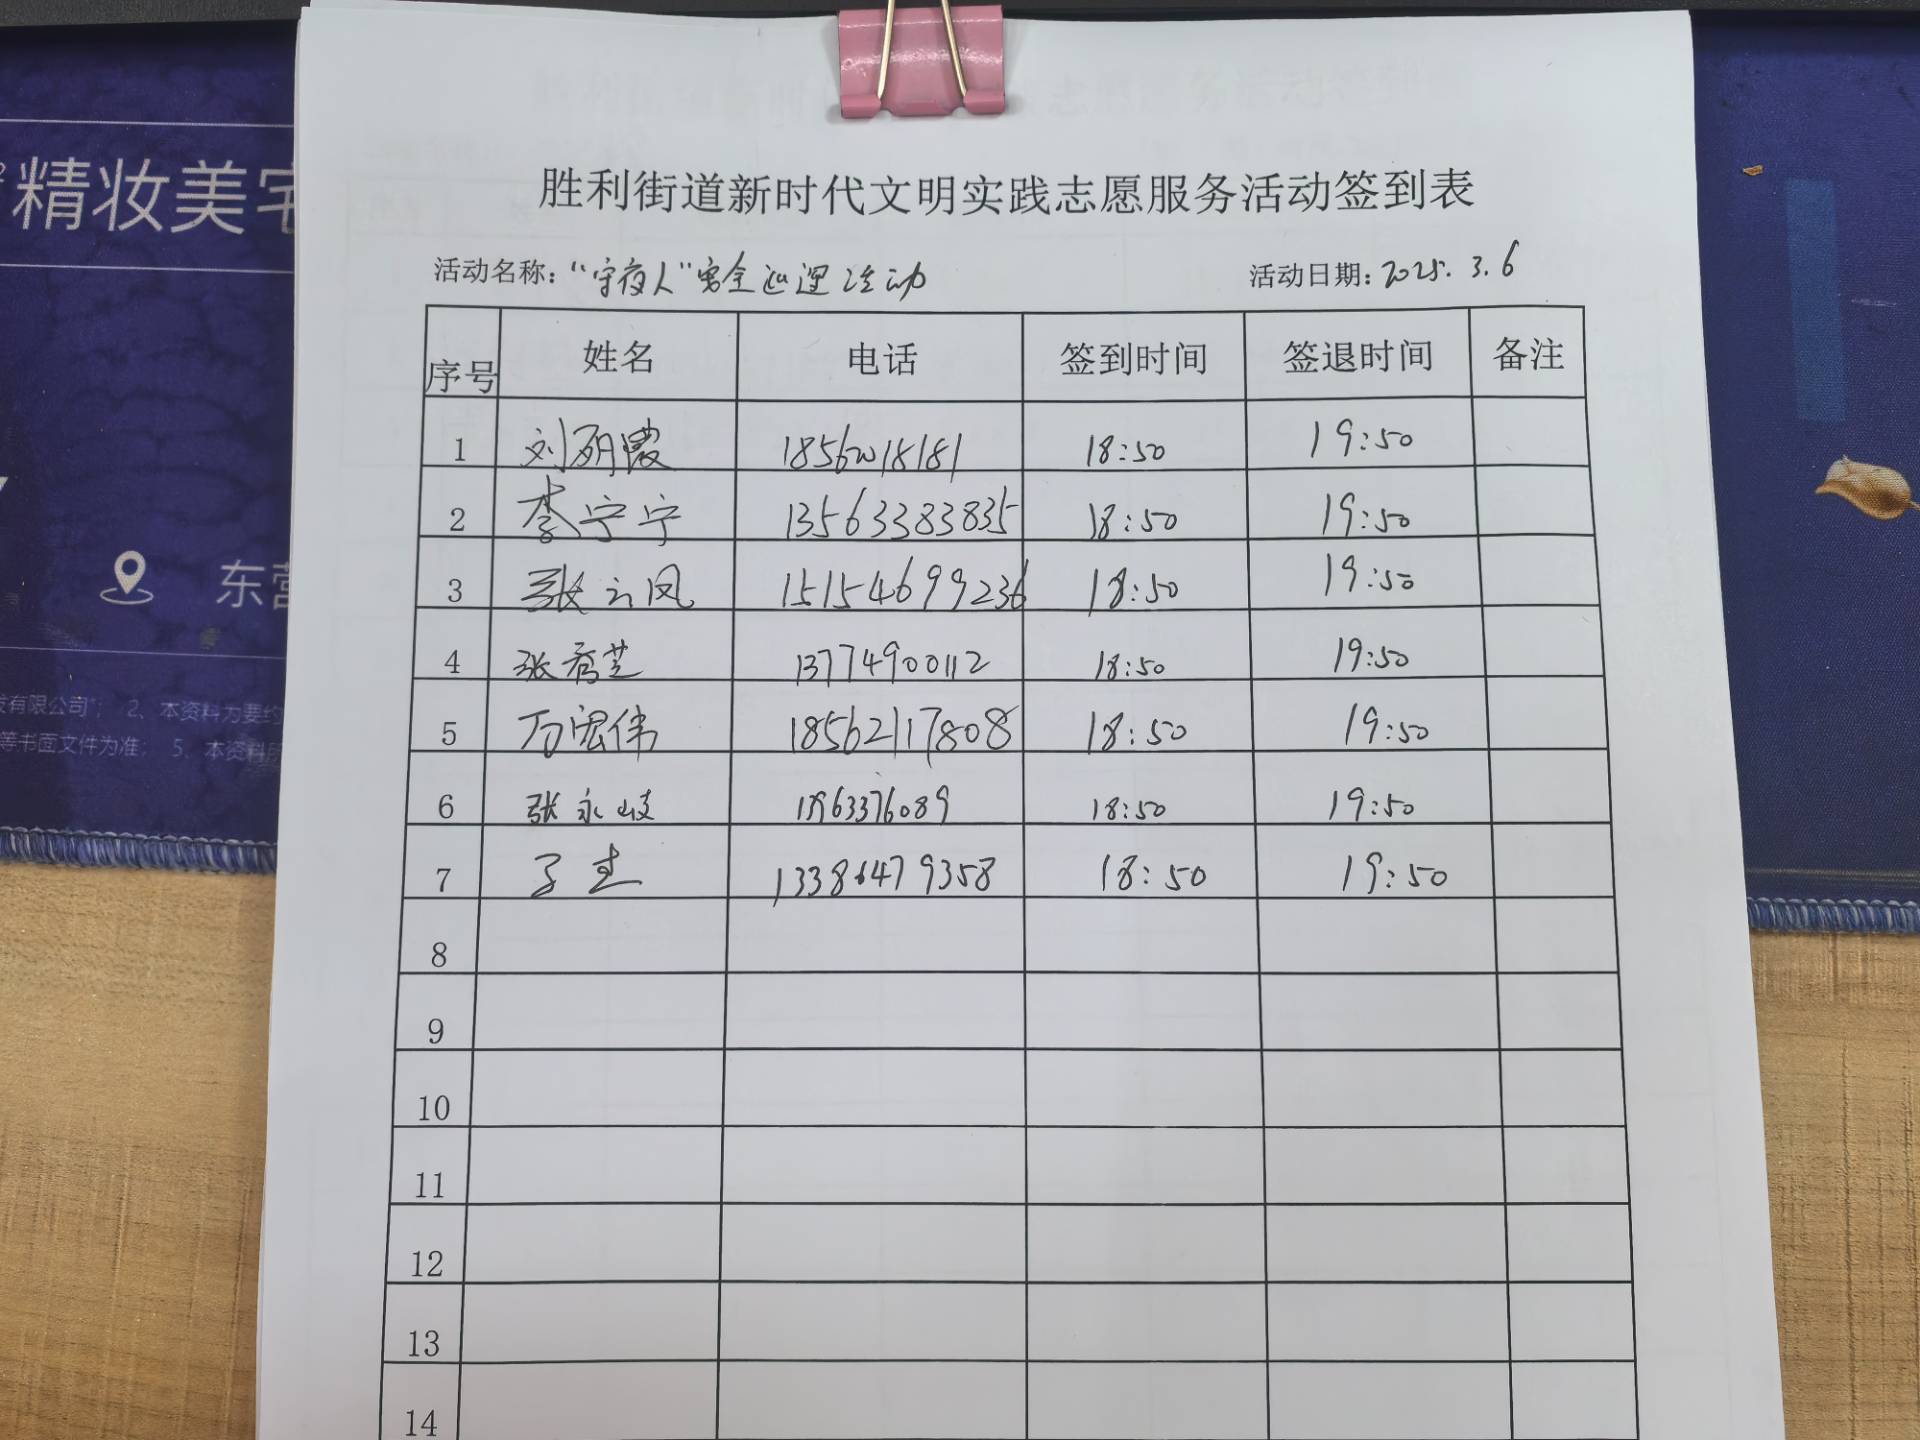 精妆美宅
东营
发有限公司"; 2、本资料为要约
等书面文件为准; 5、本资料
胜利街道新时代文明实践志愿服务活动签到表
活动名称: "守夜人"安全巡逻活动 活动日期: 2025.3.6
序号 姓名 电话 签到时间 签退时间 备注
1 刘丽霞 18:50 19:50
2 李宁宁 13563383835 18:50 19:50
3 张云凤 15154699236 18:50 19:50
4 张秀芝 13774900112 18:50 19:50
5 万宏伟 18562117808 18:50 19:50
6 张永岐 18:50 19:50
7 13386479358 18:50 19:50
8
9
10
11
12
13
14